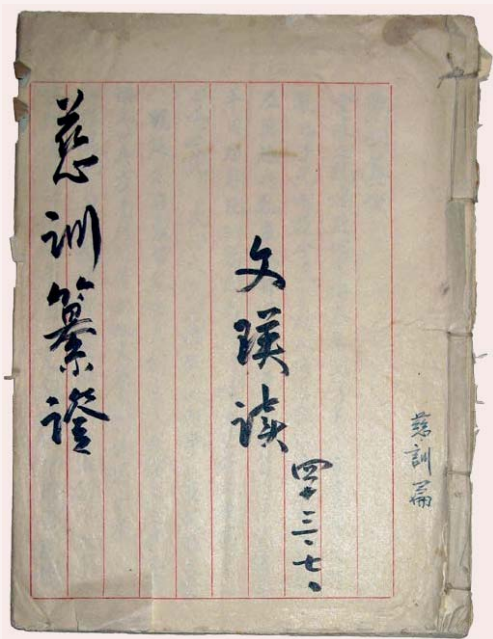 慈訓篇
文瑛读
四十三、七、
慈训纂證